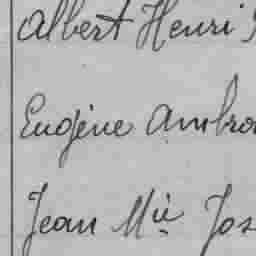 Albert Henri
Eugène Ambro
Jean Mie Jos